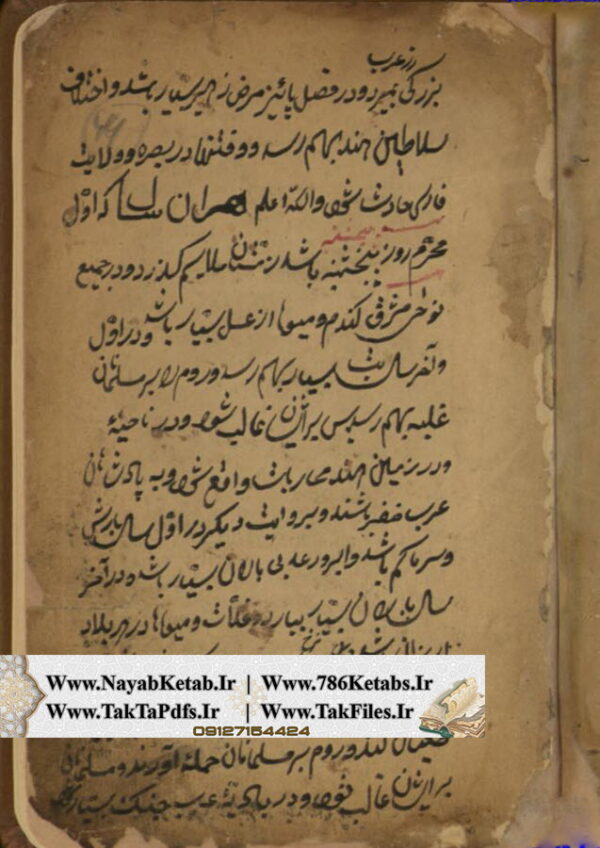 در عرب
بزرگی بمیرد و در فصل پائیز مرض زحیر بسیار باشد و اختلاف
سلاطین هند بهم رسد و فتنها در بصره و ولایت
فارس حادث شود والله اعلم هر سال که اول
پنجشنبه
محرم روز پنجشنبه باشد زمستان ملایم گذرد و در جمیع
نواحی مشرق گندم و میوها از عسل بسیار باشد و در اول
و آخر سال تب بسیار بهم رسد و روم را بر مسلمانان
غلبه بهم رسد پس بر ایشان غالب شود و در ناحیهٔ
و در زمین هند محاربات واقع شود و پادشاهان
عرب ظفر باشند و بروایت دیگر در اول سال بارش
و سرما کم باشد و ابر و رعد بی باران بسیار باشد و در آخر
سال باران بسیار ببارد و غلات و میوها در هر بلاد
Www.NayabKetab.Ir | Www.786Ketabs.Ir
Www.TakTaPdfs.Ir | Www.TakFiles.Ir
09127154424
کنند و روم بر مسلمانان حمله آورند و مسلمانان
بر ایشان غالب شوند و در بادیهٔ عرب جنگ بسیار